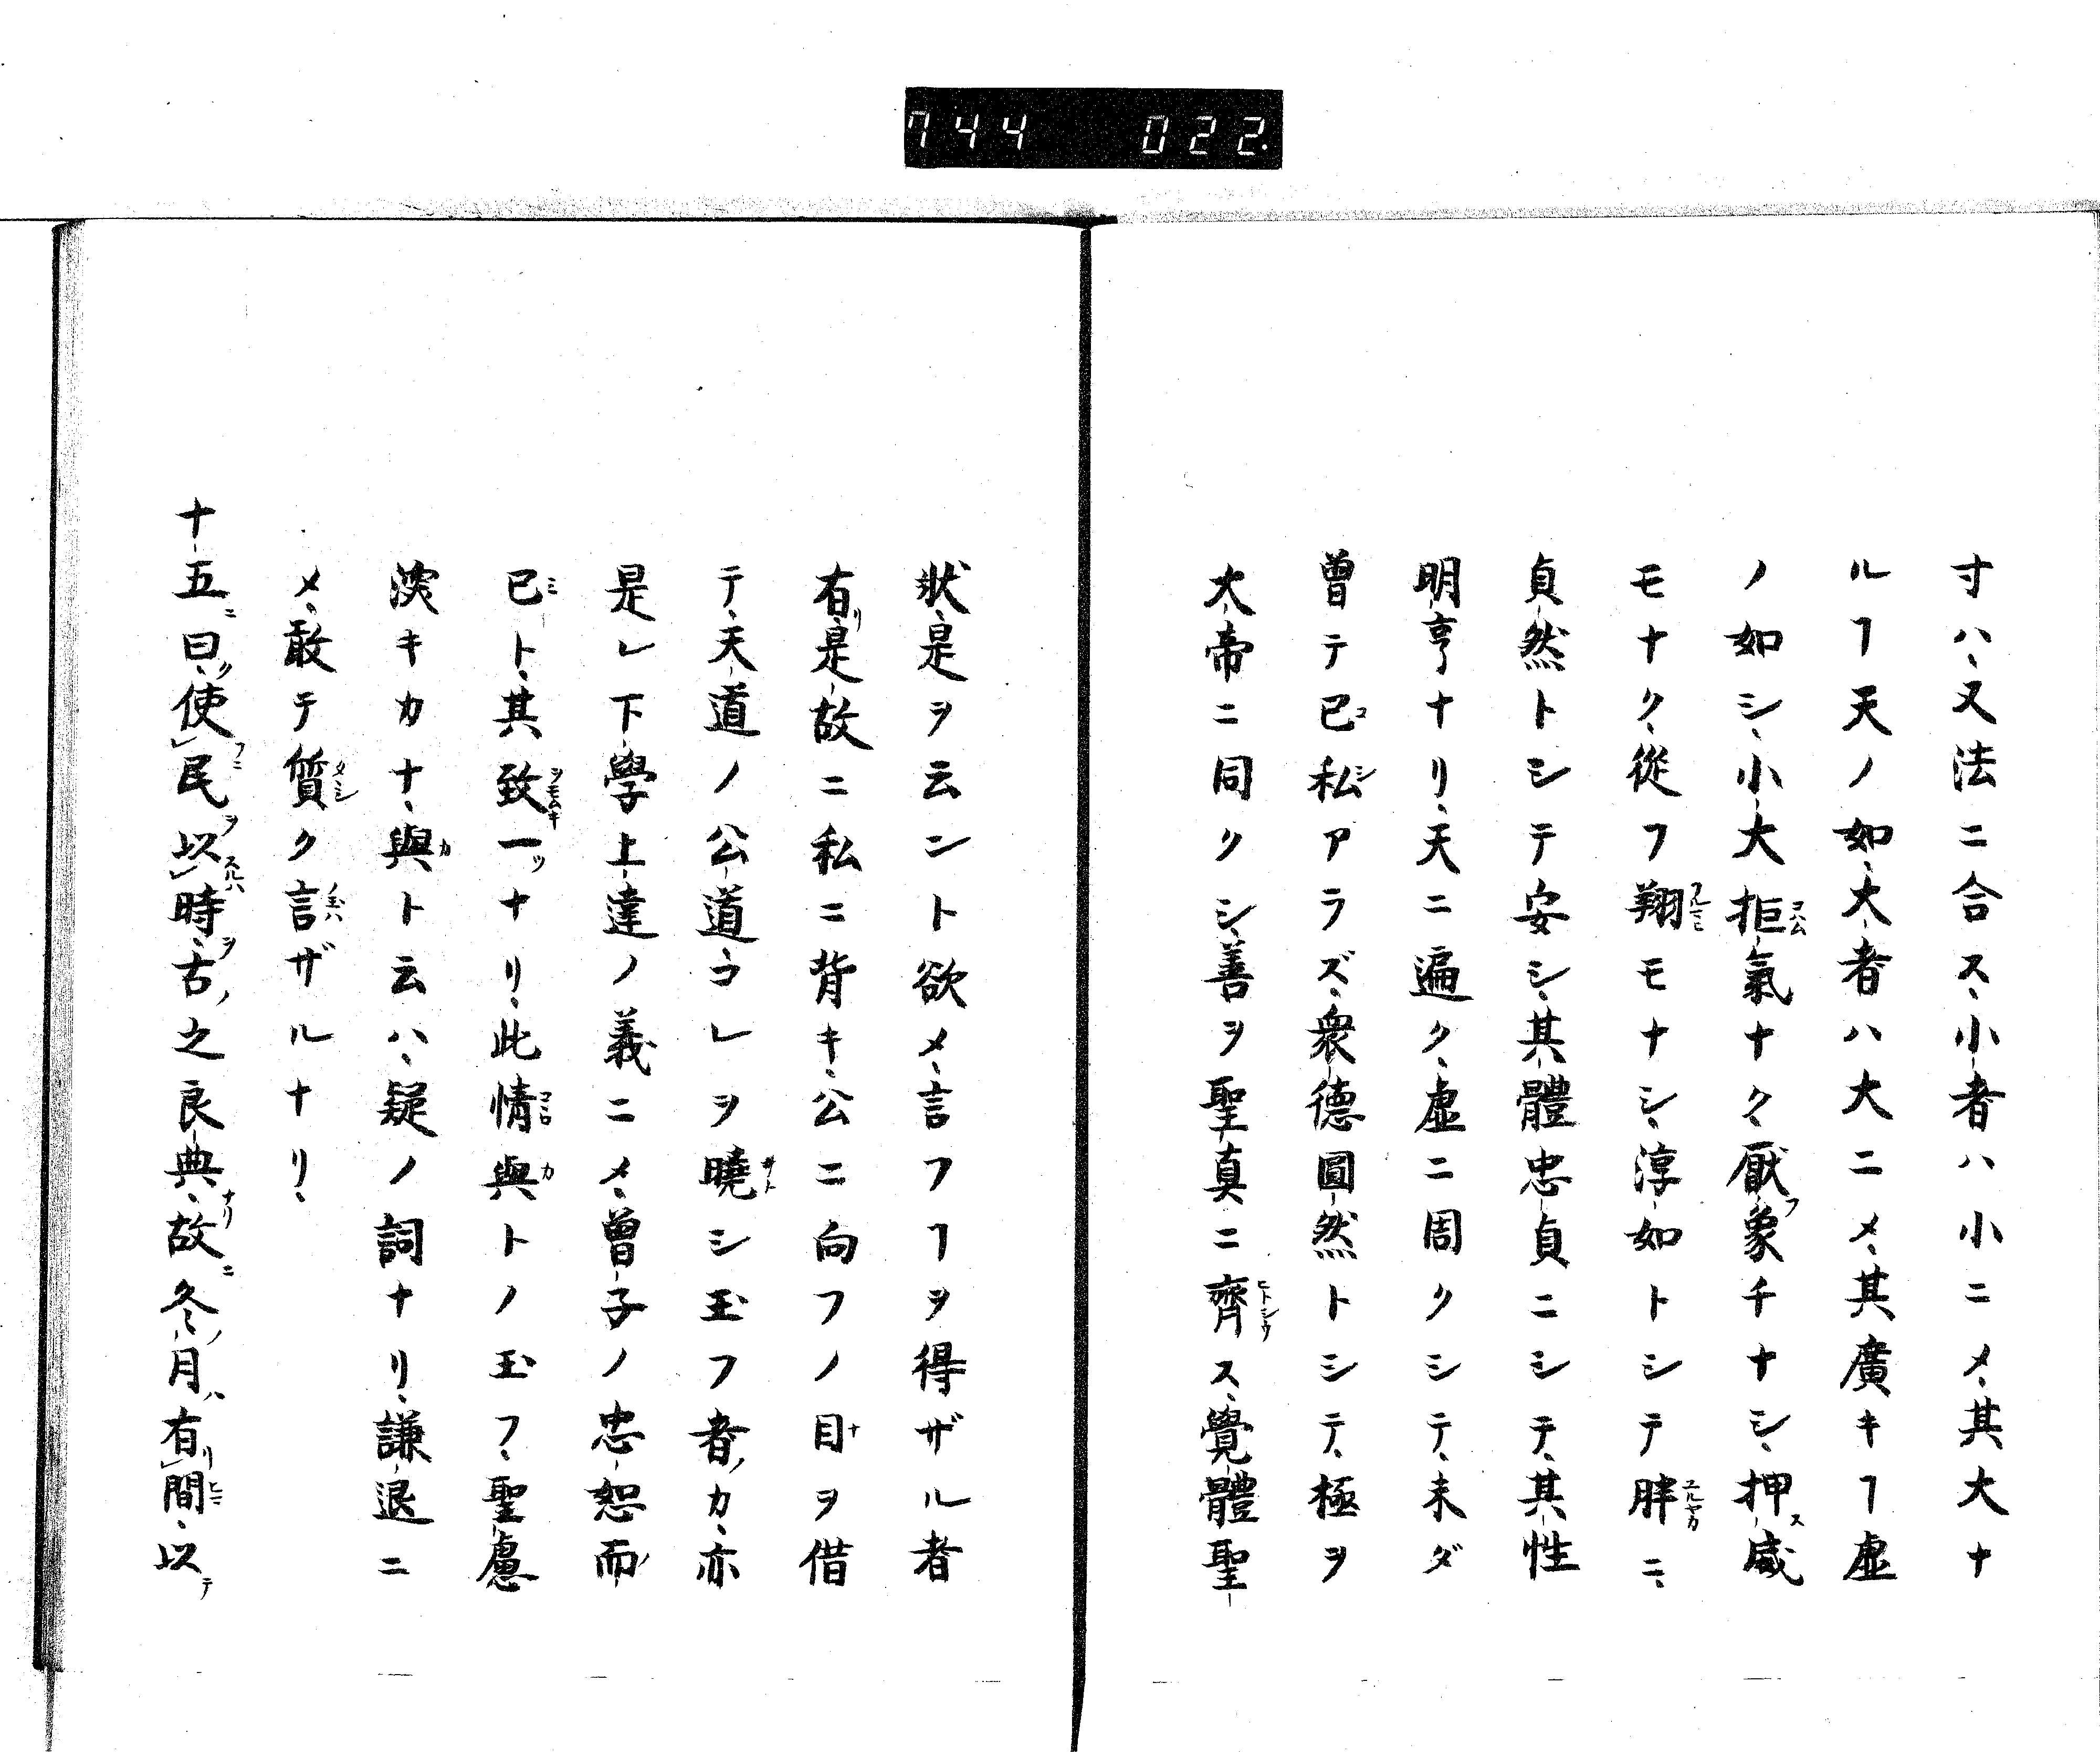 744 022.
寸ハ、又法ニ合ス、小者ハ小ニメ、其大ナ
ルヿ天ノ如、大者ハ大ニメ、其廣キヿ虚
ノ如シ、小大拒氣ナク厭象チナシ、押威
モナク、從フ翔モナシ、淳如トシテ胖ニ、
貞然トシテ安シ、其體忠貞ニシテ、其性
明亨ナリ、天ニ遍ク、虚ニ周クシテ、未ダ
曾テ已私アラズ、衆德圓然トシテ、極ヲ
大帝ニ同クシ、善ヲ聖真ニ齊ス、覺體聖
狀、是ヲ云ント欲メ、言フヿヲ得ザル者
有リ、是故ニ私ニ背キ、公ニ向フノ目ヲ借
テ、天道ノ公道、コレヲ曉シ玉フ者ノカ、亦
是レ下學上達ノ義ニメ、曾子ノ忠恕而
已ト、其致一ツナリ、此情與トノ玉フ、聖慮
深キカナ、與ト云ハ、疑ノ詞ナリ、謙退ニ
メ、敢テ質ク言ザルナリ、
十五ニ曰ク、使民ヲ以時ヲ、古ノ之良典ナリ、故ニ冬ノ月ハ有リ間、以テ